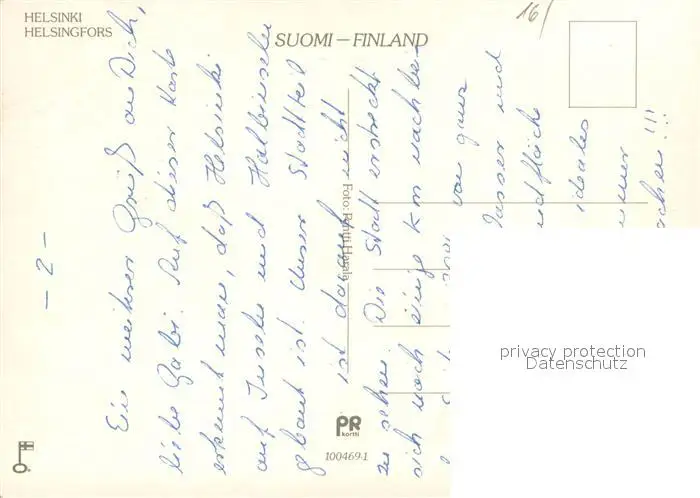 HELSINKI
HELSINGFORS
SUOMI — FINLAND
16/
- 2 -
Ein weiterer Gruß an Dich,
liebe Gabi. Auf dieser Karte
erkennt man, daß Helsinki
auf Inseln und Halbinseln
gebaut ist. Unser Stadtteil
ist darauf nicht
zu sehen. Die Stadt erstreckt
sich noch einige km nach
von ganz
Wasser und
ideales
!!!
Foto: Pentti
PR
kortti
100469-1
privacy protection
Datenschutz